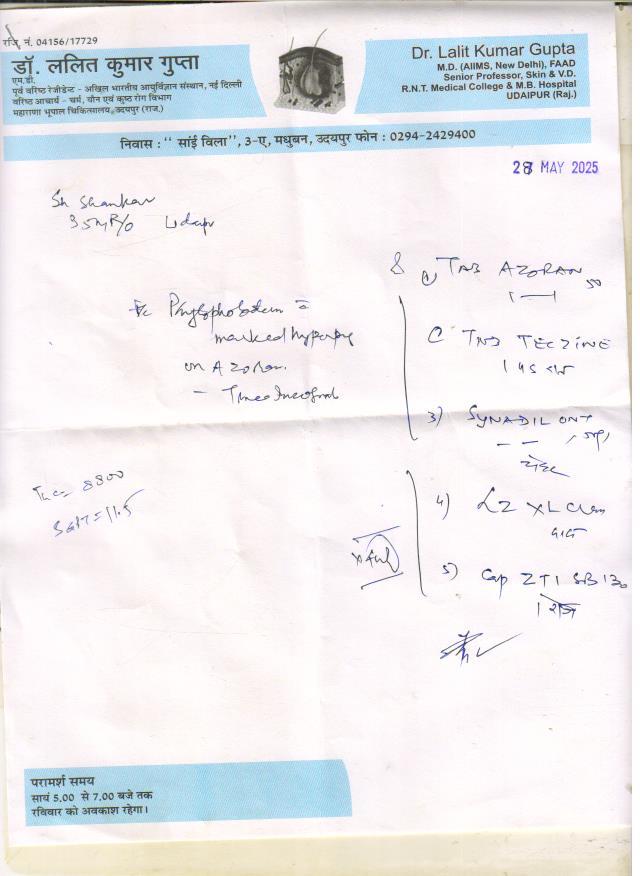 रजि. नं. 04156/17729
डॉ. ललित कुमार गुप्ता
एम.डी.
पूर्व वरिष्ठ रेजीडेन्ट - अखिल भारतीय आयुर्विज्ञान संस्थान, नई दिल्ली
वरिष्ठ आचार्य - चर्म, यौन एवं कुष्ठ रोग विभाग
महाराणा भूपाल चिकित्सालय, उदयपुर (राज.)
Dr. Lalit Kumar Gupta
M.D. (AIIMS, New Delhi), FAAD
Senior Professor, Skin & V.D.
R.N.T. Medical College & M.B. Hospital
UDAIPUR (Raj.)
निवास : " सांई विला", 3-ए, मधुबन, उदयपुर फोन : 0294-2429400
28 MAY 2025
Sh Shankar
35 R/o
1) TAB AZORAN 50
marked
on Azoran
TAB TECZINE
3) SYNADIL ONT
TLC = 8800
SGPT = 11.5
4) LZ XL Cream
5) Cap ZTI SB 130
परामर्श समय
सायं 5.00 से 7.00 बजे तक
रविवार को अवकाश रहेगा।